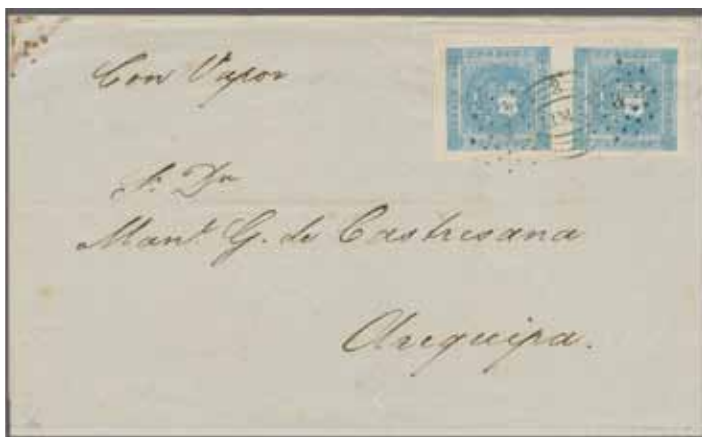 Con Vapor
S. Dn
Manl. G. de Castresana
Arequipa.